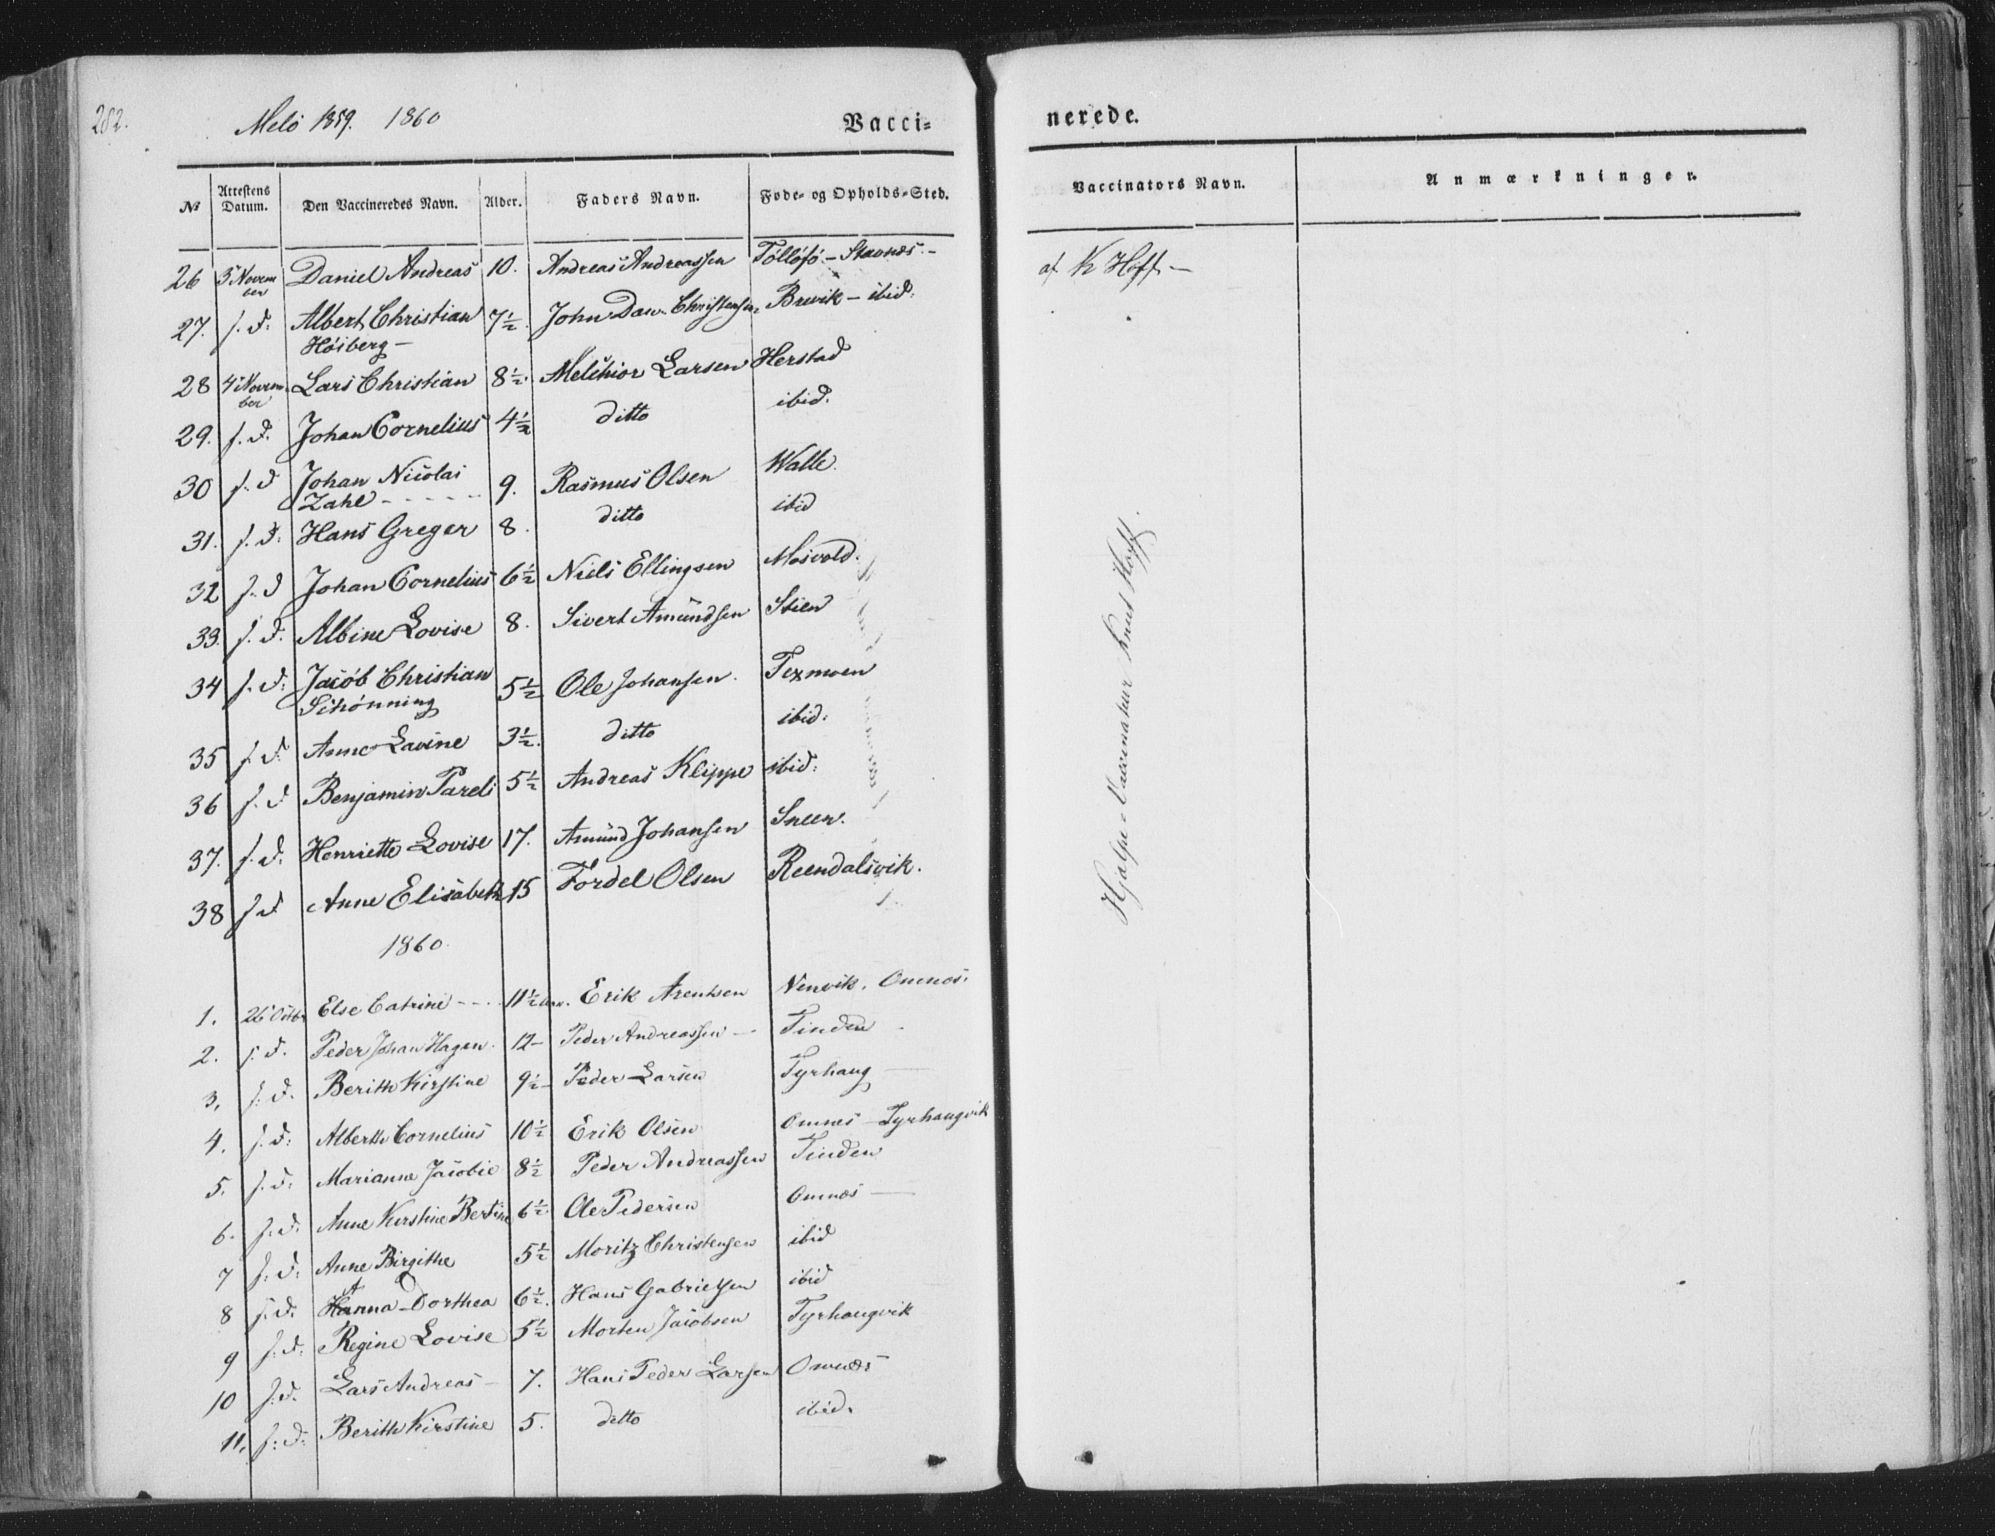 282.
Melö 1859. 1860
Vacci- nerede.
№ | Attestens Datum. | Den Vaccineredes Navn. | Alder. | Faders Navn. | Føde- og Opholds-Sted. | Vaccinators Navn. | Anmærkninger.
26 | 3 November | Daniel Andreas | 10. | Andreas Andreassen | Töllöfö - Stavnes - | af K Hoff -
27. | s. d: | Albert Christian Höiberg - | 7½. | John Dan. Christensen | Brevik - ibid:
28 | 4 November | Lars Christian | 8½. | Melchior Larsen | Herstad
29. | s. d. | Johan Cornelius | 4½ | ditto | ibid.
30 | s. d | Johan Nicolai Zahl - - - - | 9. | Rasmus Olsen | Walle.
31. | s. d. | Hans Greger | 8. | ditto | ibid
32 | s. d | Johan Cornelius | 6½ | Niels Ellingsen | Mosvold.
33. | s. d. | Albine Lovise | 8. | Sivert Amundsen | Stien
34 | s. d: | Jacob Christian Schönning | 5½ | Ole Johansen. | Texmoen
35 | s. d: | Anne Lavine | 3½. | ditto | ibid:
36 | s. d | Benjamin Pareli | 5½ | Andreas Klippe | ibid:
37. | s. d. | Henriette Lovise | 17. | Amund Johansen | Sneen.
38 | s d | Anne Elisabeth | 15 | Tordel Olsen | Reendalsvik.
Hjælpe-Vaccinatur Knut Hoff.
1860.
1. | 26 Octbr | Else Catrine - - | 11½ | Erik Arentsen | Nenvik. Omnes.
2. | s. d. | Peder Johan Hagen. | 12 - | Peder Andreassen - | Tinden -
3. | s: d. | Berith Kirstine | 9½ - | Peder Larsen | Tyrhaug
4. | s. d: | Alberth Cornelius | 10½ | Erik Olsen | Omnes - Tyrhaugvik
5. | s. d: | Marianne Jacobie | 8½ | Peder Andreassen | Tinden
6. | s: d. | Anne Kirstine Bertine | 6½ | Ole Pedersen | Omnes -
7 | s: d: | Anne Birgithe | 5½ | Moritz Christensen | ibid
8 | s. d. | Hanna Dorthea | 6½. | Hans Gabrielsen | ibid
9 | s: d: | Regine Lovise | 5½ | Morten Jacobsen | Tyrhaugvik
10 | s: d. | Lars Andreas - | 7. | Hans Peder Larsen | Omnes
11. | s: d: | Berith Kirstine | 5. | ditto | ibid.